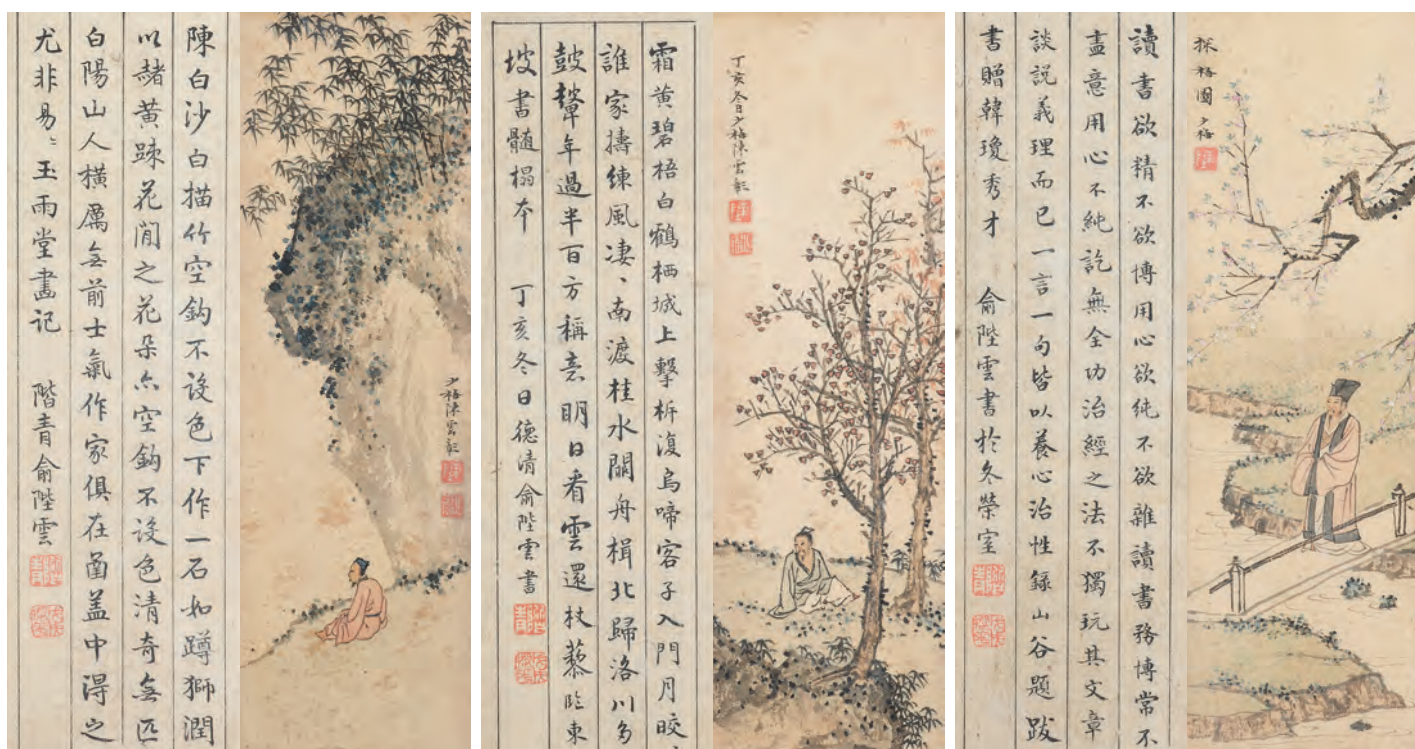 陳白沙白描竹空鈎不設色下作一石如蹲獅潤
以赭黃踈花閒之花朵亦空鈎不設色清奇無匹
白陽山人橫厲無前士氣作家俱在函盖中淂之
尤非易〻玉雨堂畫记 階青俞陛雲
少梅陳雲彰
霜黃碧梧白鶴栖城上擊柝復烏啼客子入門月皎〻
誰家擣練風凄〻南渡桂水闕舟楫北歸洛川多
鼓鼙年過半百方稱意明日看雲還杖藜臨東
坡書髓榻本 丁亥冬日德清俞陛雲書
丁亥冬日少梅陳雲彰
讀書欲精不欲博用心欲純不欲雜讀書務博常不
盡意用心不純訖無全功治經之法不獨玩其文章
談説義理而已一言一句皆以養心治性録山谷題跋
書贈韓瓊秀才 俞陛雲書於冬榮室
探梅圖 少梅